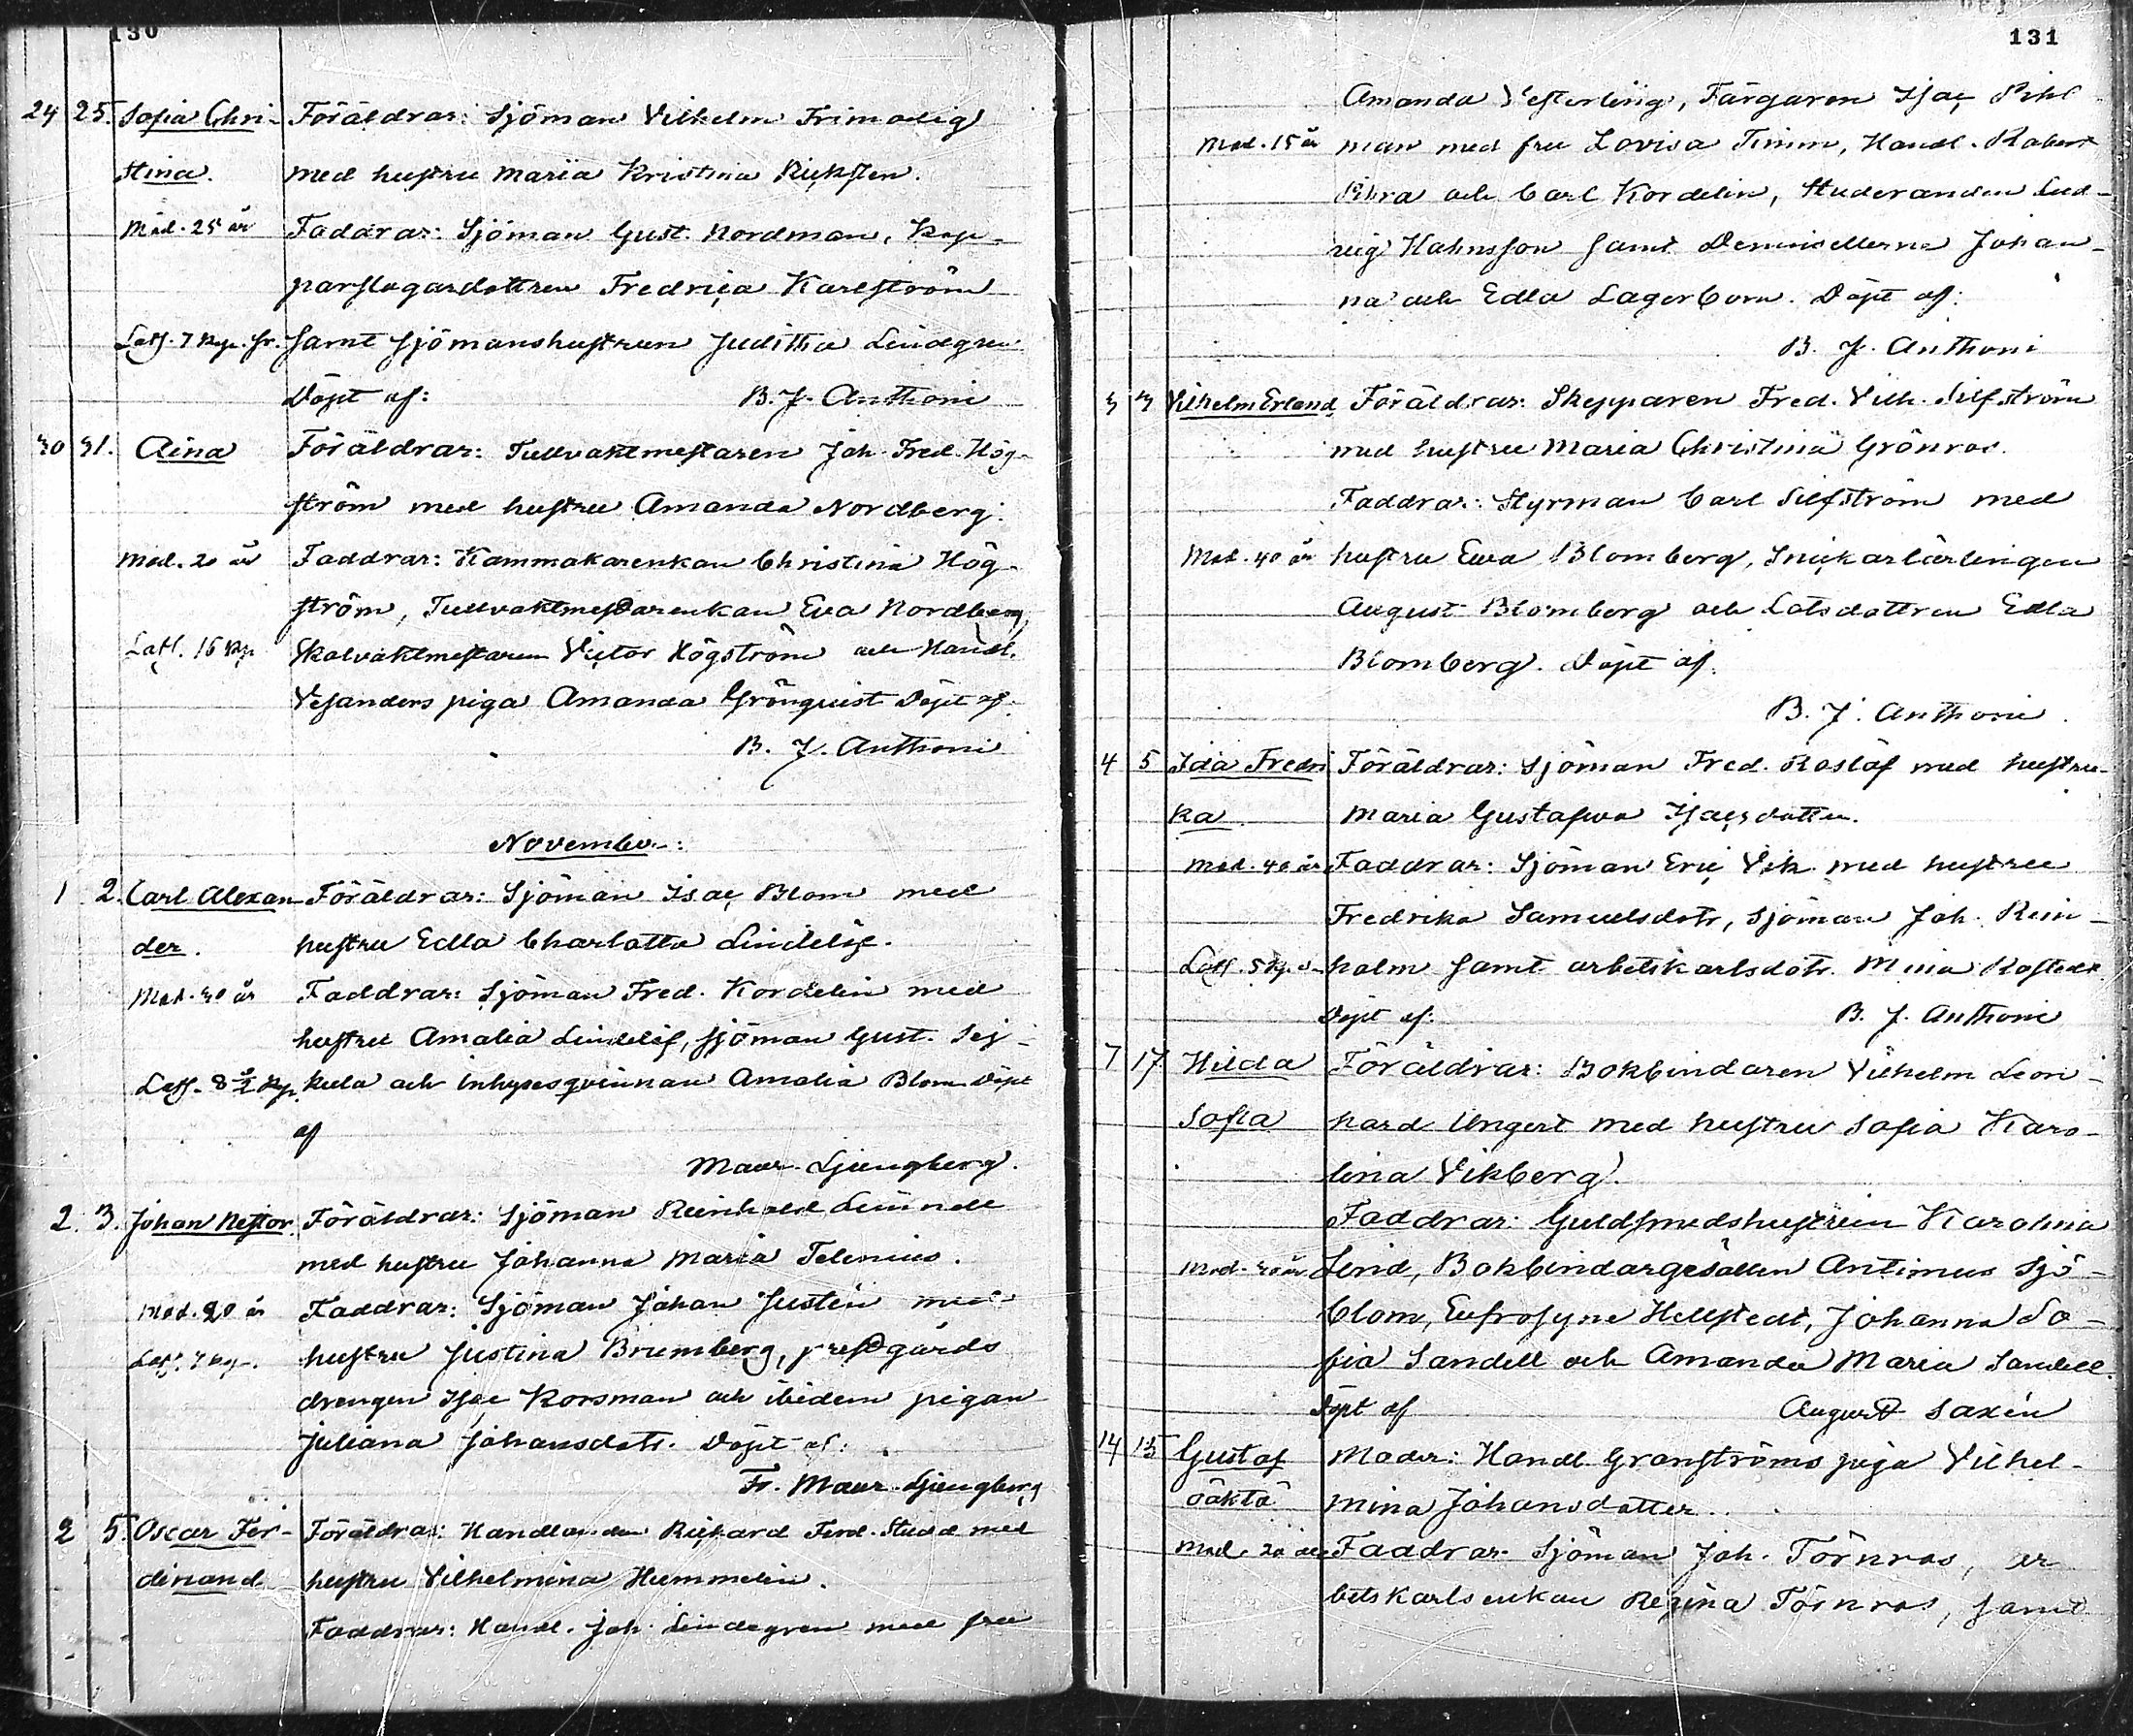 130
24 25. Sofia Chri- Föräldrar: Sjöman Vilhelm Frimodig
stina. med hustru Maria Kristina Ricksten.
Mod. 25 år Faddrar: Sjöman Gust. Nordman, Kop-
parslagardottren Fredrica Karlström
Latf. 7 kop. sr. samt sjömanshustrun Juditha Lindgren
Döpt af: B. J. Anthoni
30 31. Aina Föräldrar: Tullvaktmestaren Joh. Fred. Hög-
ström med hustru Amanda Nordberg.
Mod. 20 år Faddrar: Kammakarenkan Christina Hög-
ström, Tullvaktmestarenkan Eva Nordberg,
Latf. 16 kop Skolvaktmestaren Victor Högström och Handl.
Vesanders piga Amanda Grönquist Döpt af:
B. J. Anthoni
November:
1 2. Carl Alexan- Föräldrar: Sjöman Isac Blom med
der. hustru Edla Charlotta Lindelöf.
Mod. 30 år Faddrar: Sjöman Fred. Kordelin med
hustru Amalia Lindelöf, sjöman Gust. Sej-
Latf. 8 ½ kop. kula och inhysesqvinnan Amalia Blom Döpt
af
Maur. Ljungberg.
2. 3. Johan Nestor Föräldrar: Sjöman Reinhold
med hustru Johanna Maria Telenius.
Mod. 20 år Faddrar: Sjöman Johan Justén med
Latf. 7 kop. hustru Justina Brumberg, prestgårds
drengen Isac Korsman och ibidem pigan
Juliana Johansdotr. Döpt af:
Fr. Maur. Ljungberg
2 5. Oscar Fer- Föräldrar: Handlanden Rickard Ferd. Studd med
dinand. hustru Vilhelmina Hummelin.
Faddrar: Handl. Joh. Lindegren med fru
131
Amanda Vesterling, Färgaren Isac Pihl-
Mod. 15 år man med fru Lovisa Timm, Handl. Robert
och Carl Kordelin, Studeranden Lud-
vig Hahnsson samt Demoisellerna Johan-
na och Edla Lagerborn. Döpt af:
B. J. Anthoni
3 3 Vilhelm Erland Föräldrar: Skepparen Fred. Vilh. Silfström
med hustru Maria Christina Grönros.
Faddrar: Styrman Carl Silfström med
Mod. 40 år hustru Ewa Blomberg, Snickarlärlingen
August Blomberg och Lotsdottren Edla
Blomberg. Döpt af.
B. J. Anthoni.
4 5 Ida Fredri Föräldrar: Sjöman Fred. Roslöf med hustru
ka. Maria Gustafva Isacsdotter.
Mod. 40 år Faddrar: Sjöman Eric Vik med hustru
Fredrika Samuelsdotr, Sjöman Joh. Rein-
Latf. 5 kop. s- holm samt arbetskarlsdotr. Mina
Döpt af: B. J. Anthoni
7 17 Hilda Föräldrar: Bokbindaren Vilhelm Leon-
Sofia hard Ungert med hustru Sofia Karo-
lina Vikberg.
Faddrar: Guldsmedshustrun Karolina
Mod. 30 år Lind, Bokbindargesällen Antimus Sjö-
blom, Eufrosyne Hellstedt, Johanna So-
fia Sandell och Amanda Maria Sandell.
Döpt af August Saxén
14 15 Gustaf Moder: Handl. Granströms piga Vilhel-
oäkta mina Johansdotter.
Mod. 20 år Faddrar: Sjöman Joh. Törnros, ar
betskarlsenkan Regina Törnros, samt